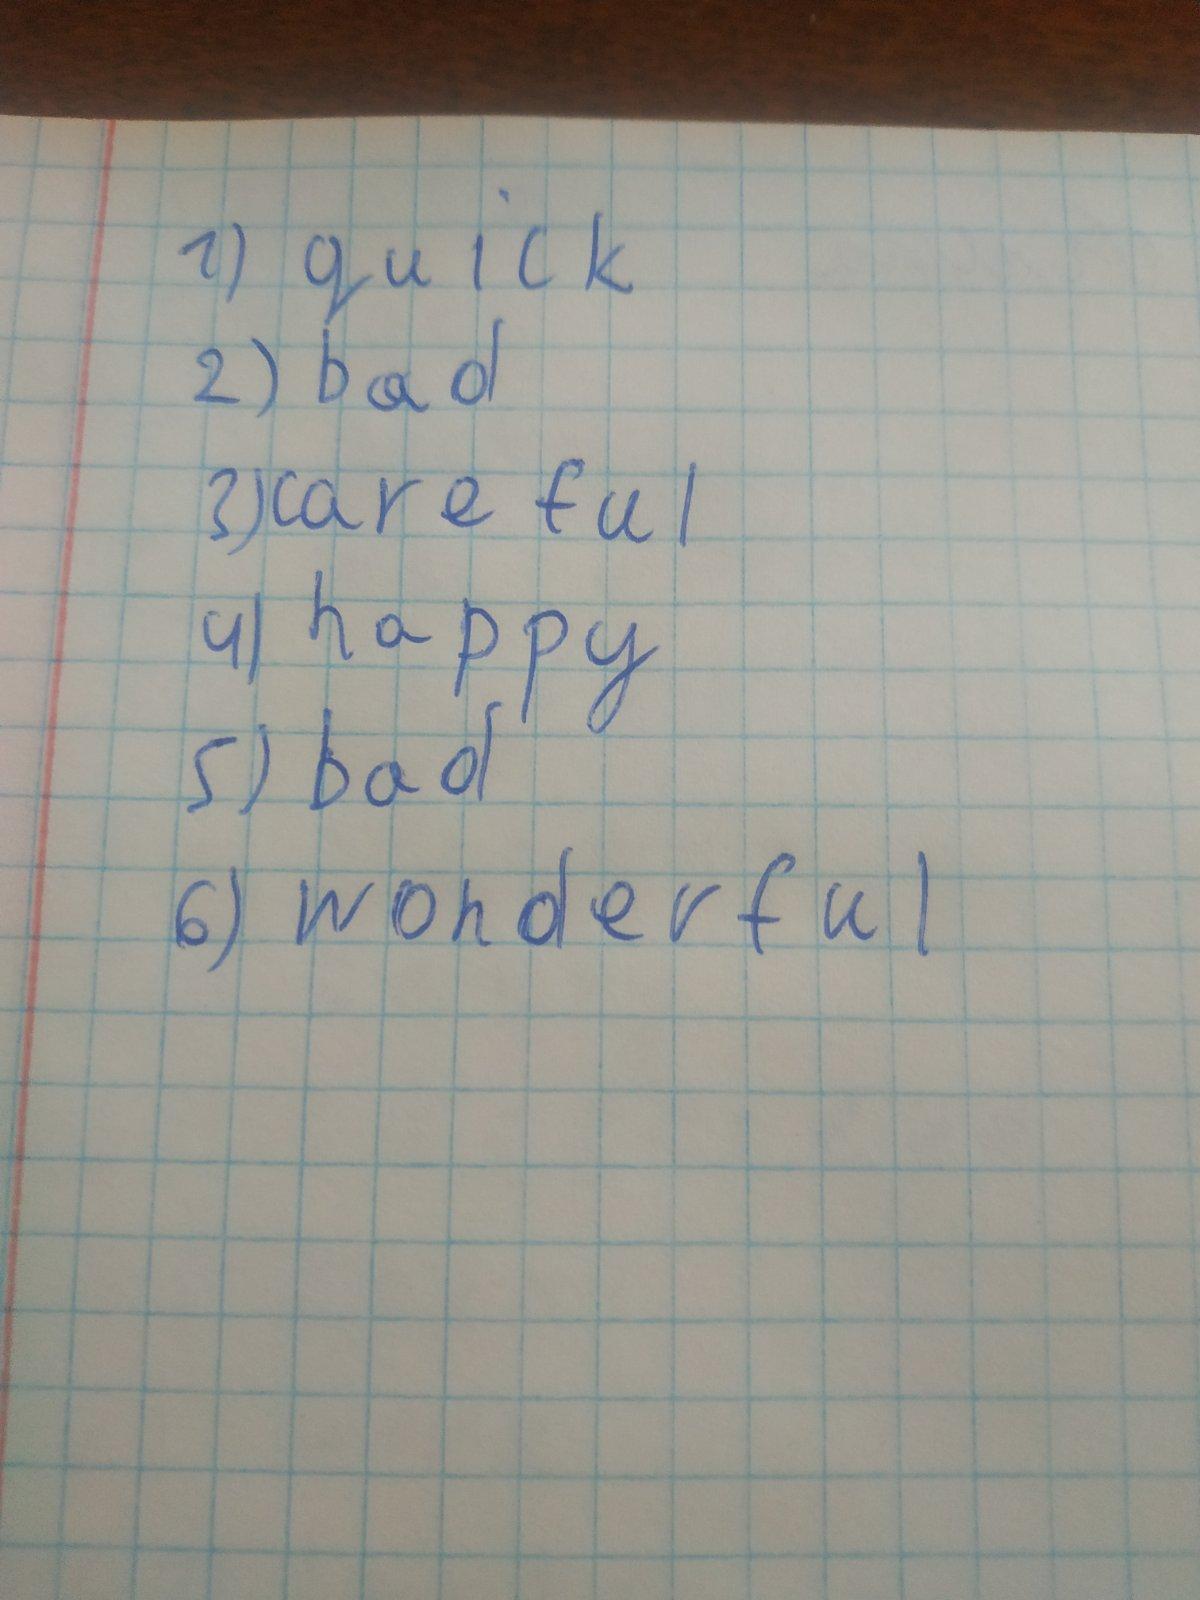 1) quick
2) bad
3) careful
4) happy
5) bad
6) wonderful